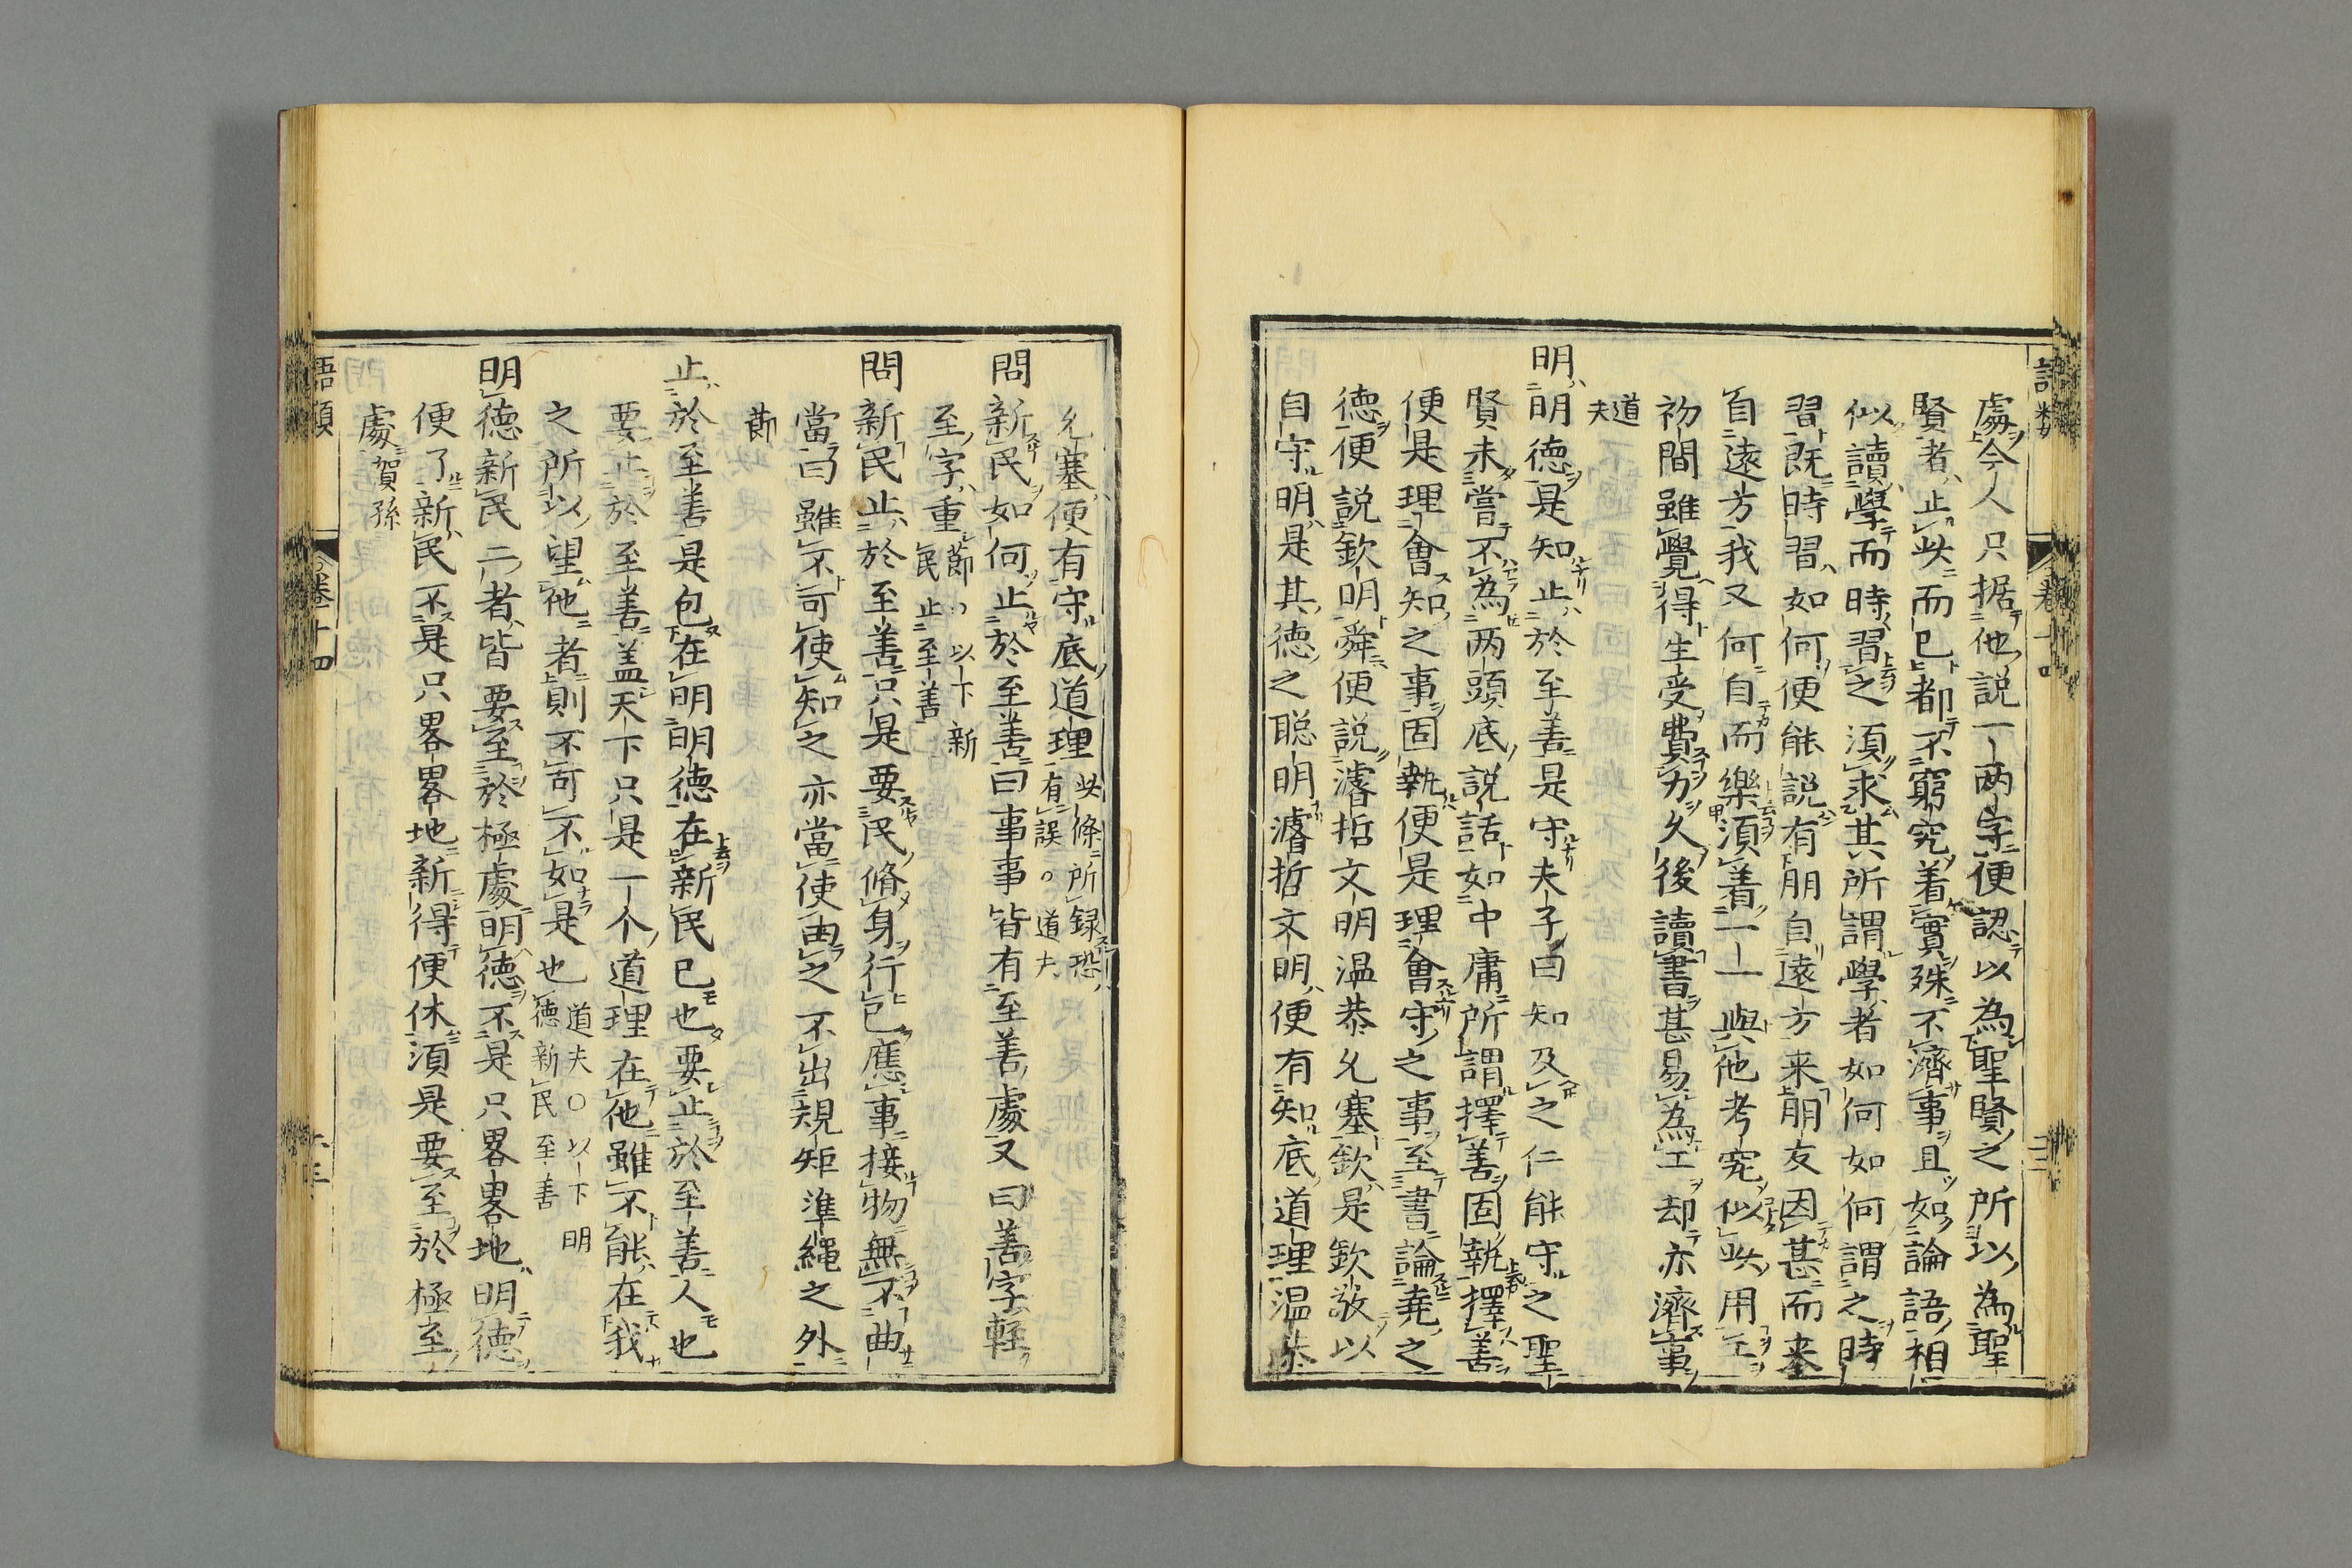 處今人只据他説一両字便認以為聖賢之所以為聖
賢者止此而已都不窮究着實殊不濟事且如論語相
似讀學而時習之湏求其所謂學者如何如何謂之時
習既時習如何便能説有朋自遠方来朋友因甚而来
自遠方我又何自而樂湏着一一與他考究似此用工
初間雖覺得生受費力久後讀書甚易為工却亦濟事
道
夫
明明德是知止於至善是守夫子曰知及之仁能守之聖
賢未嘗不為两頭底説話如中庸所謂擇善固執擇善
便是理會知之事固執便是理會守之事至書論堯之
德便説欽明舜便説濬哲文明温恭允塞欽是欽敬以
自守明是其德之聡明濬哲文明便有知底道理温恭
允塞便有守底道理此條所録恐
有誤○道夫
問新民如何止於至善曰事事皆有至善處又曰善字軽
至字重節○以下新
民止至善
問新民止於至善只是要民脩身行己應事接物無不曲
當曰雖不可使知之亦當使由之不出規矩準縄之外
節
止於至善是包在明明德在新民己也要止於至善人也
要止於至善盖天下只是一个道理在他雖不能在我
之所以望他者則不可不如是也道夫○以下明
德新民至善
明德新民二者皆要至於極處明德不是只畧畧地明德
便了新民不是只畧畧地新得便休湏是要至於極至
處賀孫
語類
卷十四